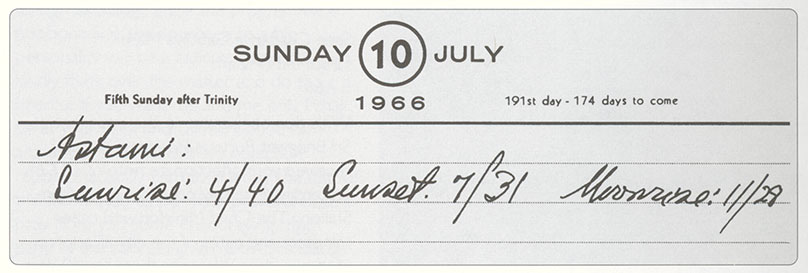 SUNDAY 10 JULY
Fifth Sunday after Trinity 1966 191st day - 174 days to come
Astami:
Sunrise: 4/40 Sunset. 7/31 Moonrise: 11/28